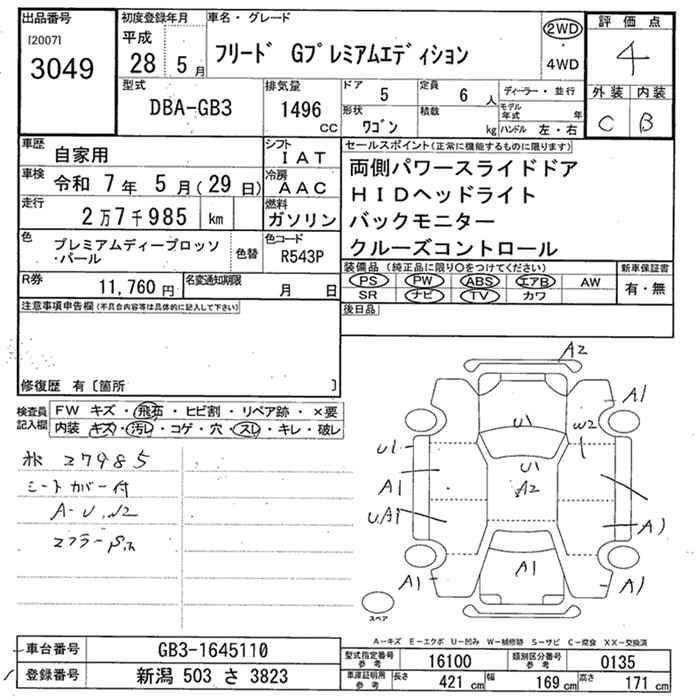 出品番号 初度登録年月 車名・グレード 評価点
[2007] 3049 平成 28 5月 フリード Gプレミアムエディション 2WD・4WD 4
型式 排気量 ドア 5 定員 6人 ディーラー・並行 外装 内装
DBA-GB3 1496cc 形状 ワゴン 積載 kg モデル年式 年 ハンドル 左・右 C B
車歴 自家用 シフト IAT セールスポイント(正常に機能するものに限ります)
車検 令和 7年 5月(29日) 冷房 AAC 両側パワースライドドア
走行 2万7千985 km 燃料 ガソリン HIDヘッドライト
バックモニター
色 プレミアムディープロッソ・パール 色替 色コード R543P クルーズコントロール
R券 11,760円 名変通知期限 月 日 装備品(純正品に限り○をつけてください) 新車保証書
PS PW ABS エアB AW 有・無
SR ナビ TV カワ
注意事項申告欄(不具合内容等は具体的に記入して下さい) 後日品
修復歴 有〔箇所 〕
検査員記入欄 FW キズ・飛石・ヒビ割・リペア跡・×要
内装 キズ・汚レ・コゲ・穴・スレ・キレ・破レ
27985
シートカバー付
A-U,W2
マフラー
A2
A1
U1 W2
U1 U1
A1 A2
U,A1 A1
A1 A1 A1
スペア
A-キズ E-エクボ U-凹み W-補修跡 S-サビ C-腐食 XX-交換済
車台番号 GB3-1645110 型式指定番号 参考 16100 類別区分番号 参考 0135
登録番号 新潟 503 さ 3823 車庫証明用 参考 長さ 421cm 幅 169cm 高さ 171cm